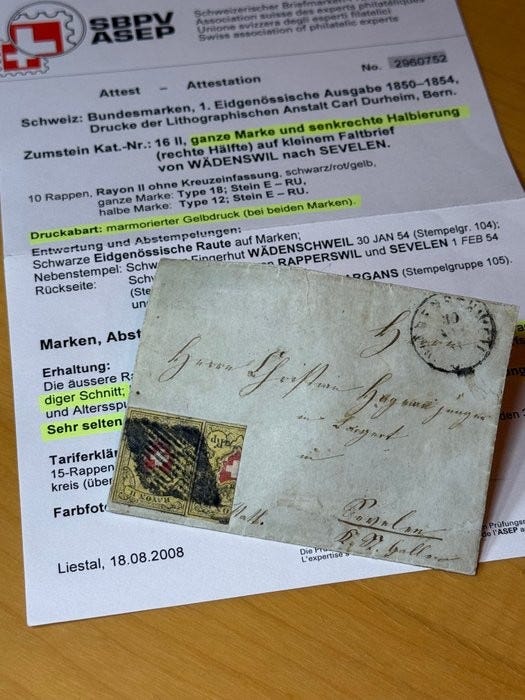 SBPV
ASEP
Schweizerischer Briefmarken
Association suisse des experts philatéliques
Unione svizzera degli esperti filatelici
Swiss association of philatelic experts
No. 2960752
Attest – Attestation
Schweiz: Bundesmarken, 1. Eidgenössische Ausgabe 1850–1854,
Drucke der Lithographischen Anstalt Carl Durheim, Bern.
Zumstein Kat.-Nr.: 16 II, ganze Marke und senkrechte Halbierung
(rechte Hälfte) auf kleinem Faltbrief
von WÄDENSWIL nach SEVELEN.
10 Rappen, Rayon II ohne Kreuzeinfassung, schwarz/rot/gelb,
ganze Marke: Type 18; Stein E – RU,
halbe Marke: Type 12; Stein E – RU.
Druckabart: marmorierter Gelbdruck (bei beiden Marken).
Entwertung und Abstempelungen:
Schwarze Eidgenössische Raute auf Marken;
Nebenstempel: Schw Fingerhut WÄDENSCHWEIL 30 JAN 54 (Stempelgr. 104);
Rückseite: Schw RAPPERSWIL und SEVELEN 1 FEB 54
(Ste ARGANS (Stempelgruppe 105).
und
Marken, Abst
Erhaltung:
Die äussere Ra
diger Schnitt;
und Altersspu
Sehr selten
Tariferklär
15-Rappen
kreis (über
Farbfoto
Liestal, 18.08.2008
Die Prü
L'expertise
Prüfungso
de l'ASEP
Herrn Christian
in
Sevelen
RAYON II